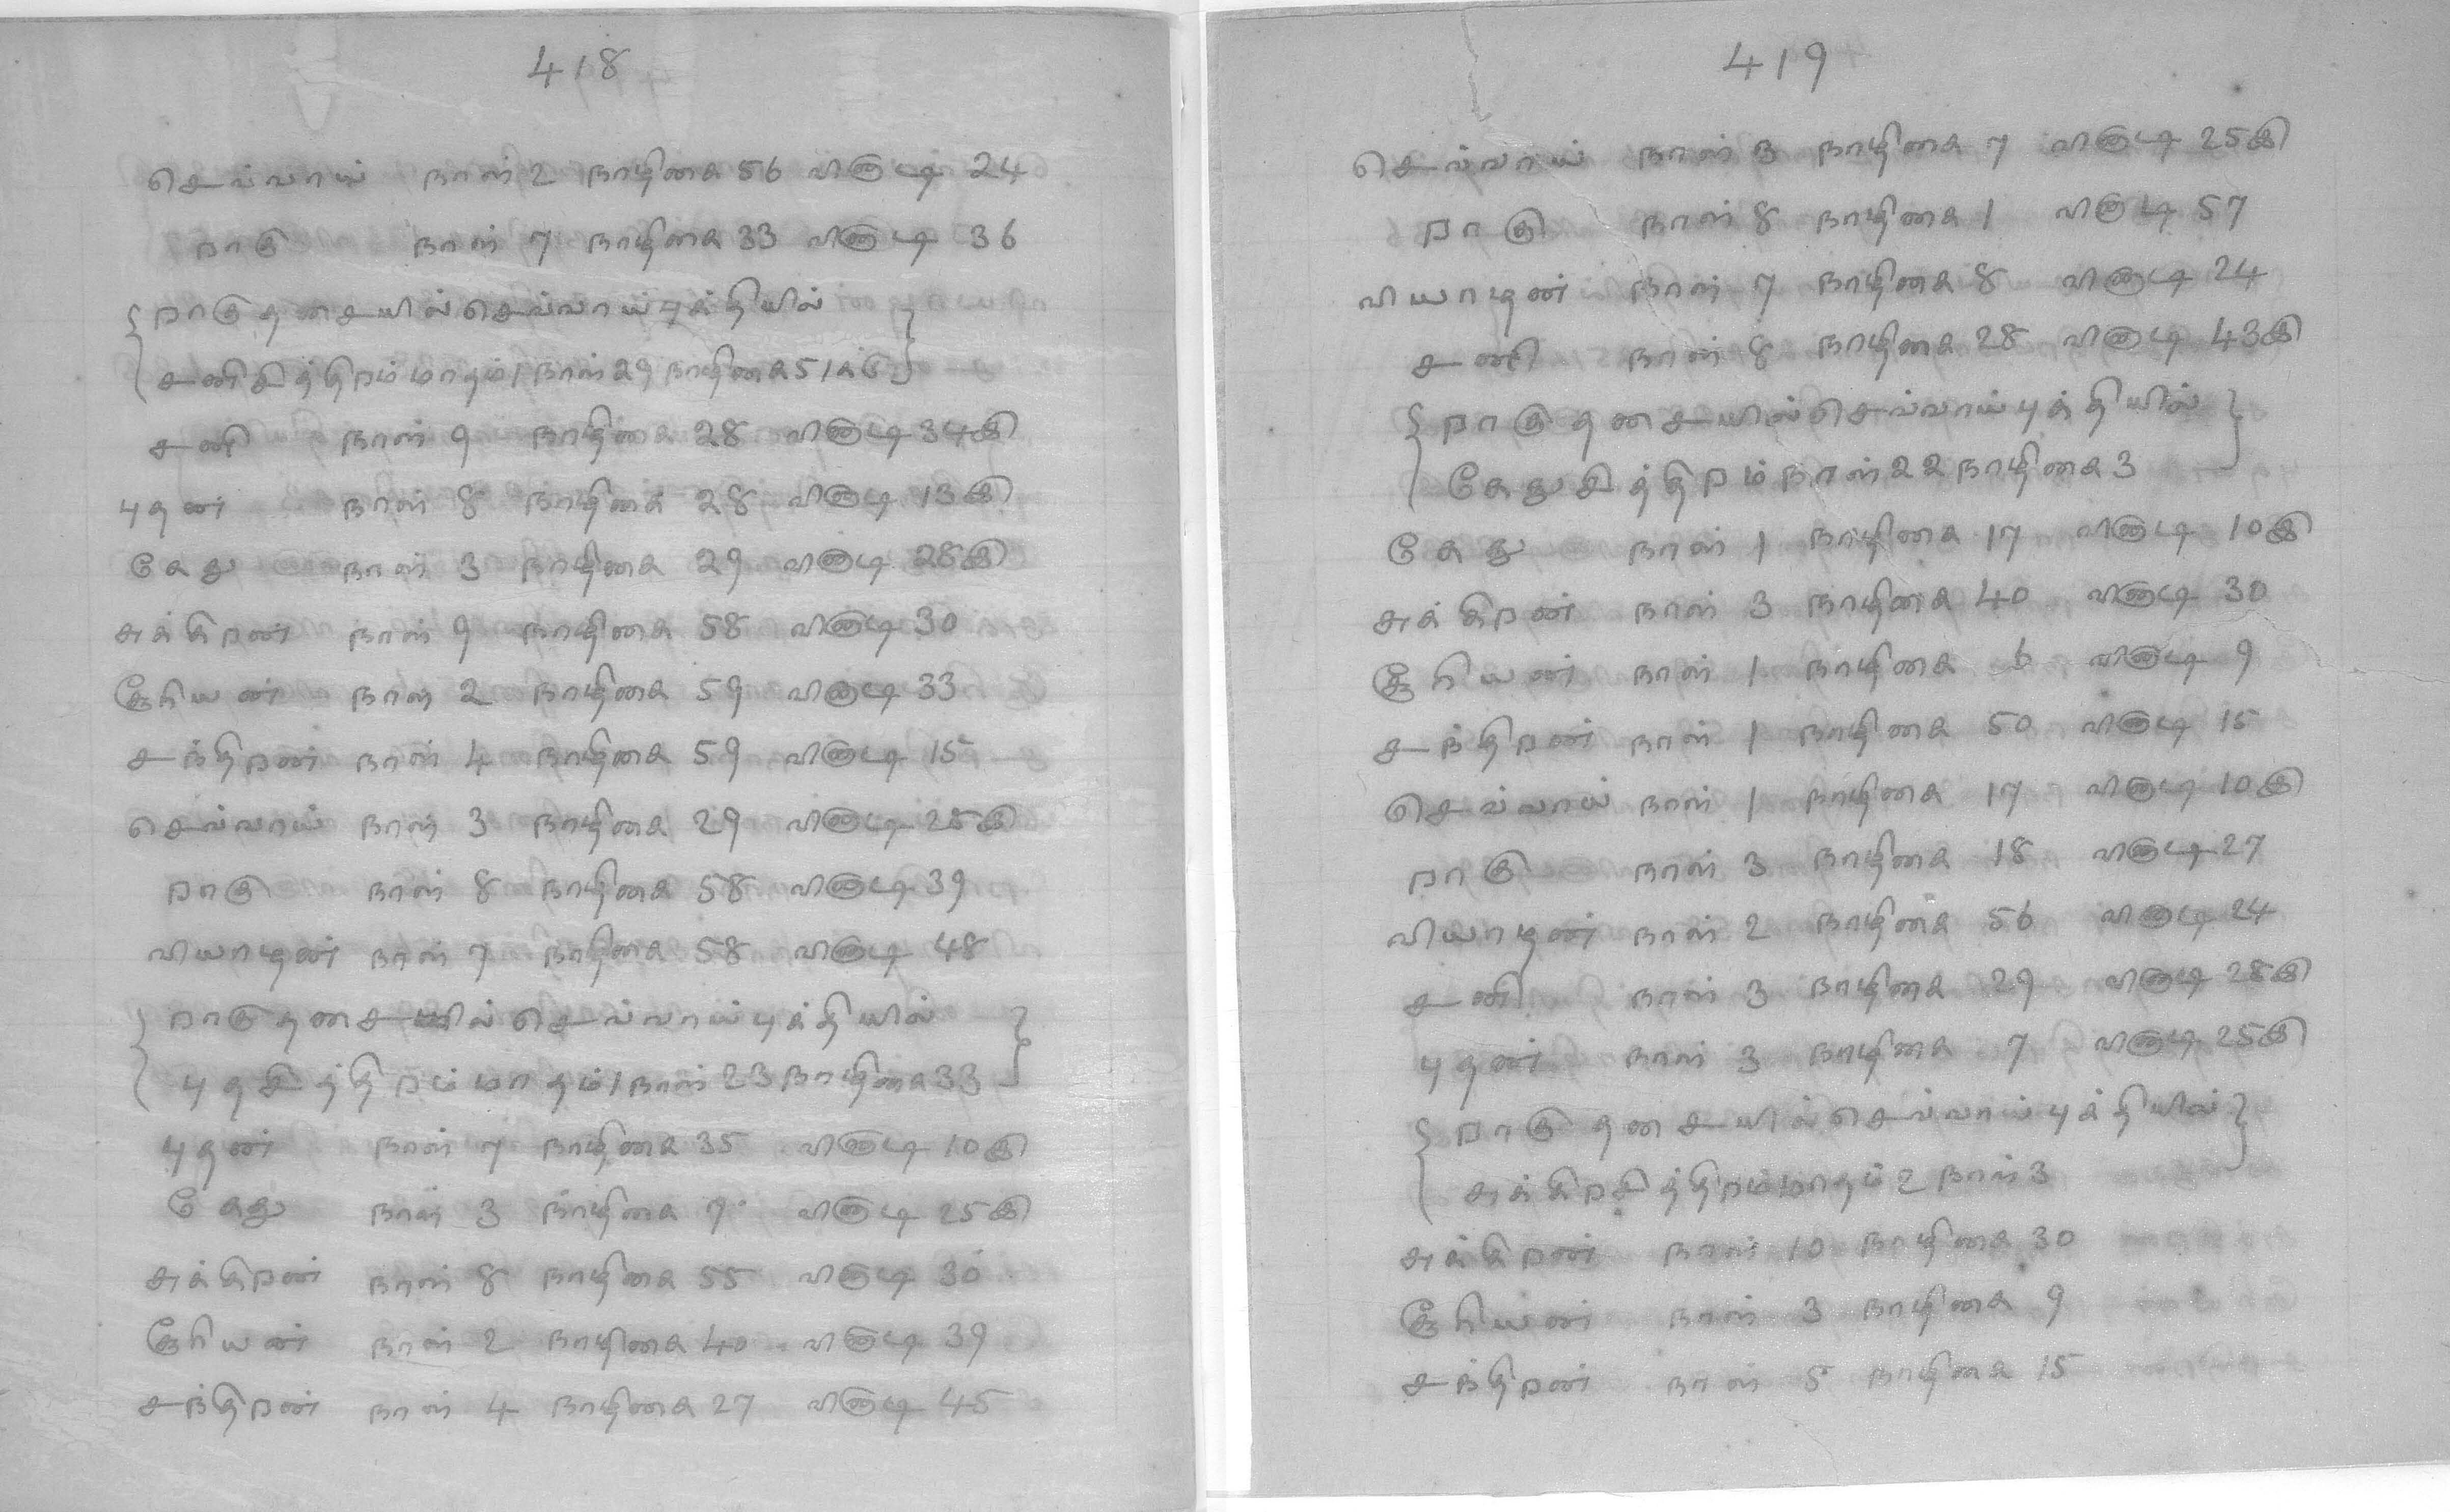 418
செவ்வாய் நாள் 2 நாழிகை 56 விநாடி 24
றாகு நாள் 7 நாழிகை 33 விநாடி 36
{றாகு தசையில் செவ்வாய் புக்தியில்}
{சனி சித்திறம் மாதம் 1 நாள் 29 நாழிகை 51க்கு}
சனி நாள் 9 நாழிகை 28 விநாடி 34இ
புதன் நாள் 8 நாழிகை 28 விநாடி 13இ
கேது நாள் 3 நாழிகை 29 விநாடி 28இ
சுக்கிறன் நாள் 9 நாழிகை 58 விநாடி 30
சூரியன் நாள் 2 நாழிகை 59 விநாடி 33
சந்திறன் நாள் 4 நாழிகை 59 விநாடி 15
செவ்வாய் நாள் 3 நாழிகை 29 விநாடி 28இ
றாகு நாள் 8 நாழிகை 58 விநாடி 39
வியாழன் நாள் 7 நாழிகை 58 விநாடி 48
{றாகு தசையில் செவ்வாய் புக்தியில்}
{புத சித்திறம் மாதம் 1 நாள் 23 நாழிகை 33}
புதன் நாள் 7 நாழிகை 35 விநாடி 10இ
கேது நாள் 3 நாழிகை 7 விநாடி 25இ
சுக்கிறன் நாள் 8 நாழிகை 55 விநாடி 30
சூரியன் நாள் 2 நாழிகை 40 விநாடி 39
சந்திறன் நாள் 4 நாழிகை 27 விநாடி 45
419
செவ்வாய் நாள் 3 நாழிகை 7 விநாடி 25இ
றாகு நாள் 8 நாழிகை 1 விநாடி 57
வியாழன் நாள் 7 நாழிகை 8 விநாடி 24
சனி நாள் 8 நாழிகை 28 விநாடி 43இ
{றாகு தசையில் செவ்வாய் புக்தியில்}
{கேது சித்திறம் நாள் 22 நாழிகை 3}
கேது நாள் 1 நாழிகை 17 விநாடி 10இ
சுக்கிறன் நாள் 3 நாழிகை 40 விநாடி 30
சூரியன் நாள் 1 நாழிகை 6 விநாடி 9
சந்திறன் நாள் 1 நாழிகை 50 விநாடி 15
செவ்வாய் நாள் 1 நாழிகை 17 விநாடி 10இ
றாகு நாள் 3 நாழிகை 18 விநாடி 27
வியாழன் நாள் 2 நாழிகை 56 விநாடி 24
சனி நாள் 3 நாழிகை 29 விநாடி 28இ
புதன் நாள் 3 நாழிகை 7 விநாடி 25இ
{றாகு தசையில் செவ்வாய் புக்தியில்}
{சுக்கிற சித்திறம் மாதம் 2 நாள் 3
சுக்கிறன் நாள் 10 நாழிகை 30
சூரியன் நாள் 3 நாழிகை 9
சந்திறன் நாள் 5 நாழிகை 15